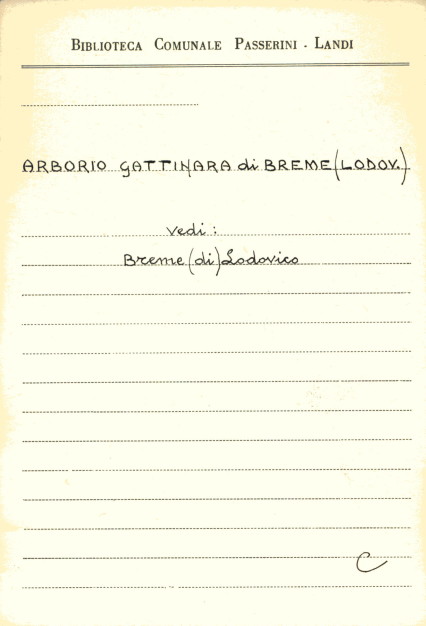 BIBLIOTECA COMUNALE PASSERINI - LANDI
ARBORIO GATTINARA di BREME (LODOV.)
vedi:
Breme (di) Lodovico
C